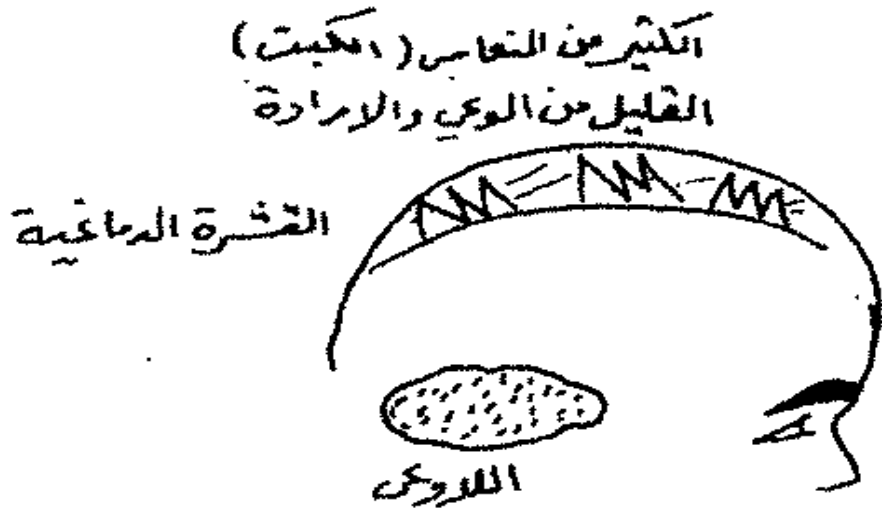 الكثير من المتعاس (الكبت)
القليل من الوعي والارادة
القشرة الدماغية
اللاوعي